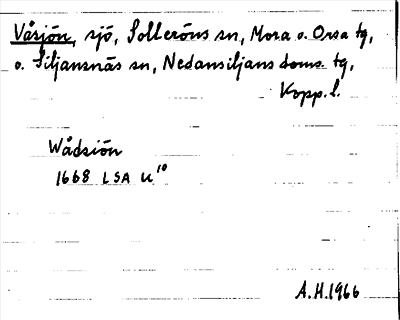 Våsjön, sjö, Solleröns sn, Mora o. Orsa tg,
o. Siljansnäs sn, Nedansiljans doms. tg,
Kopp. l.
Wådsiön
1668 LSA U 10
A.H. 1966